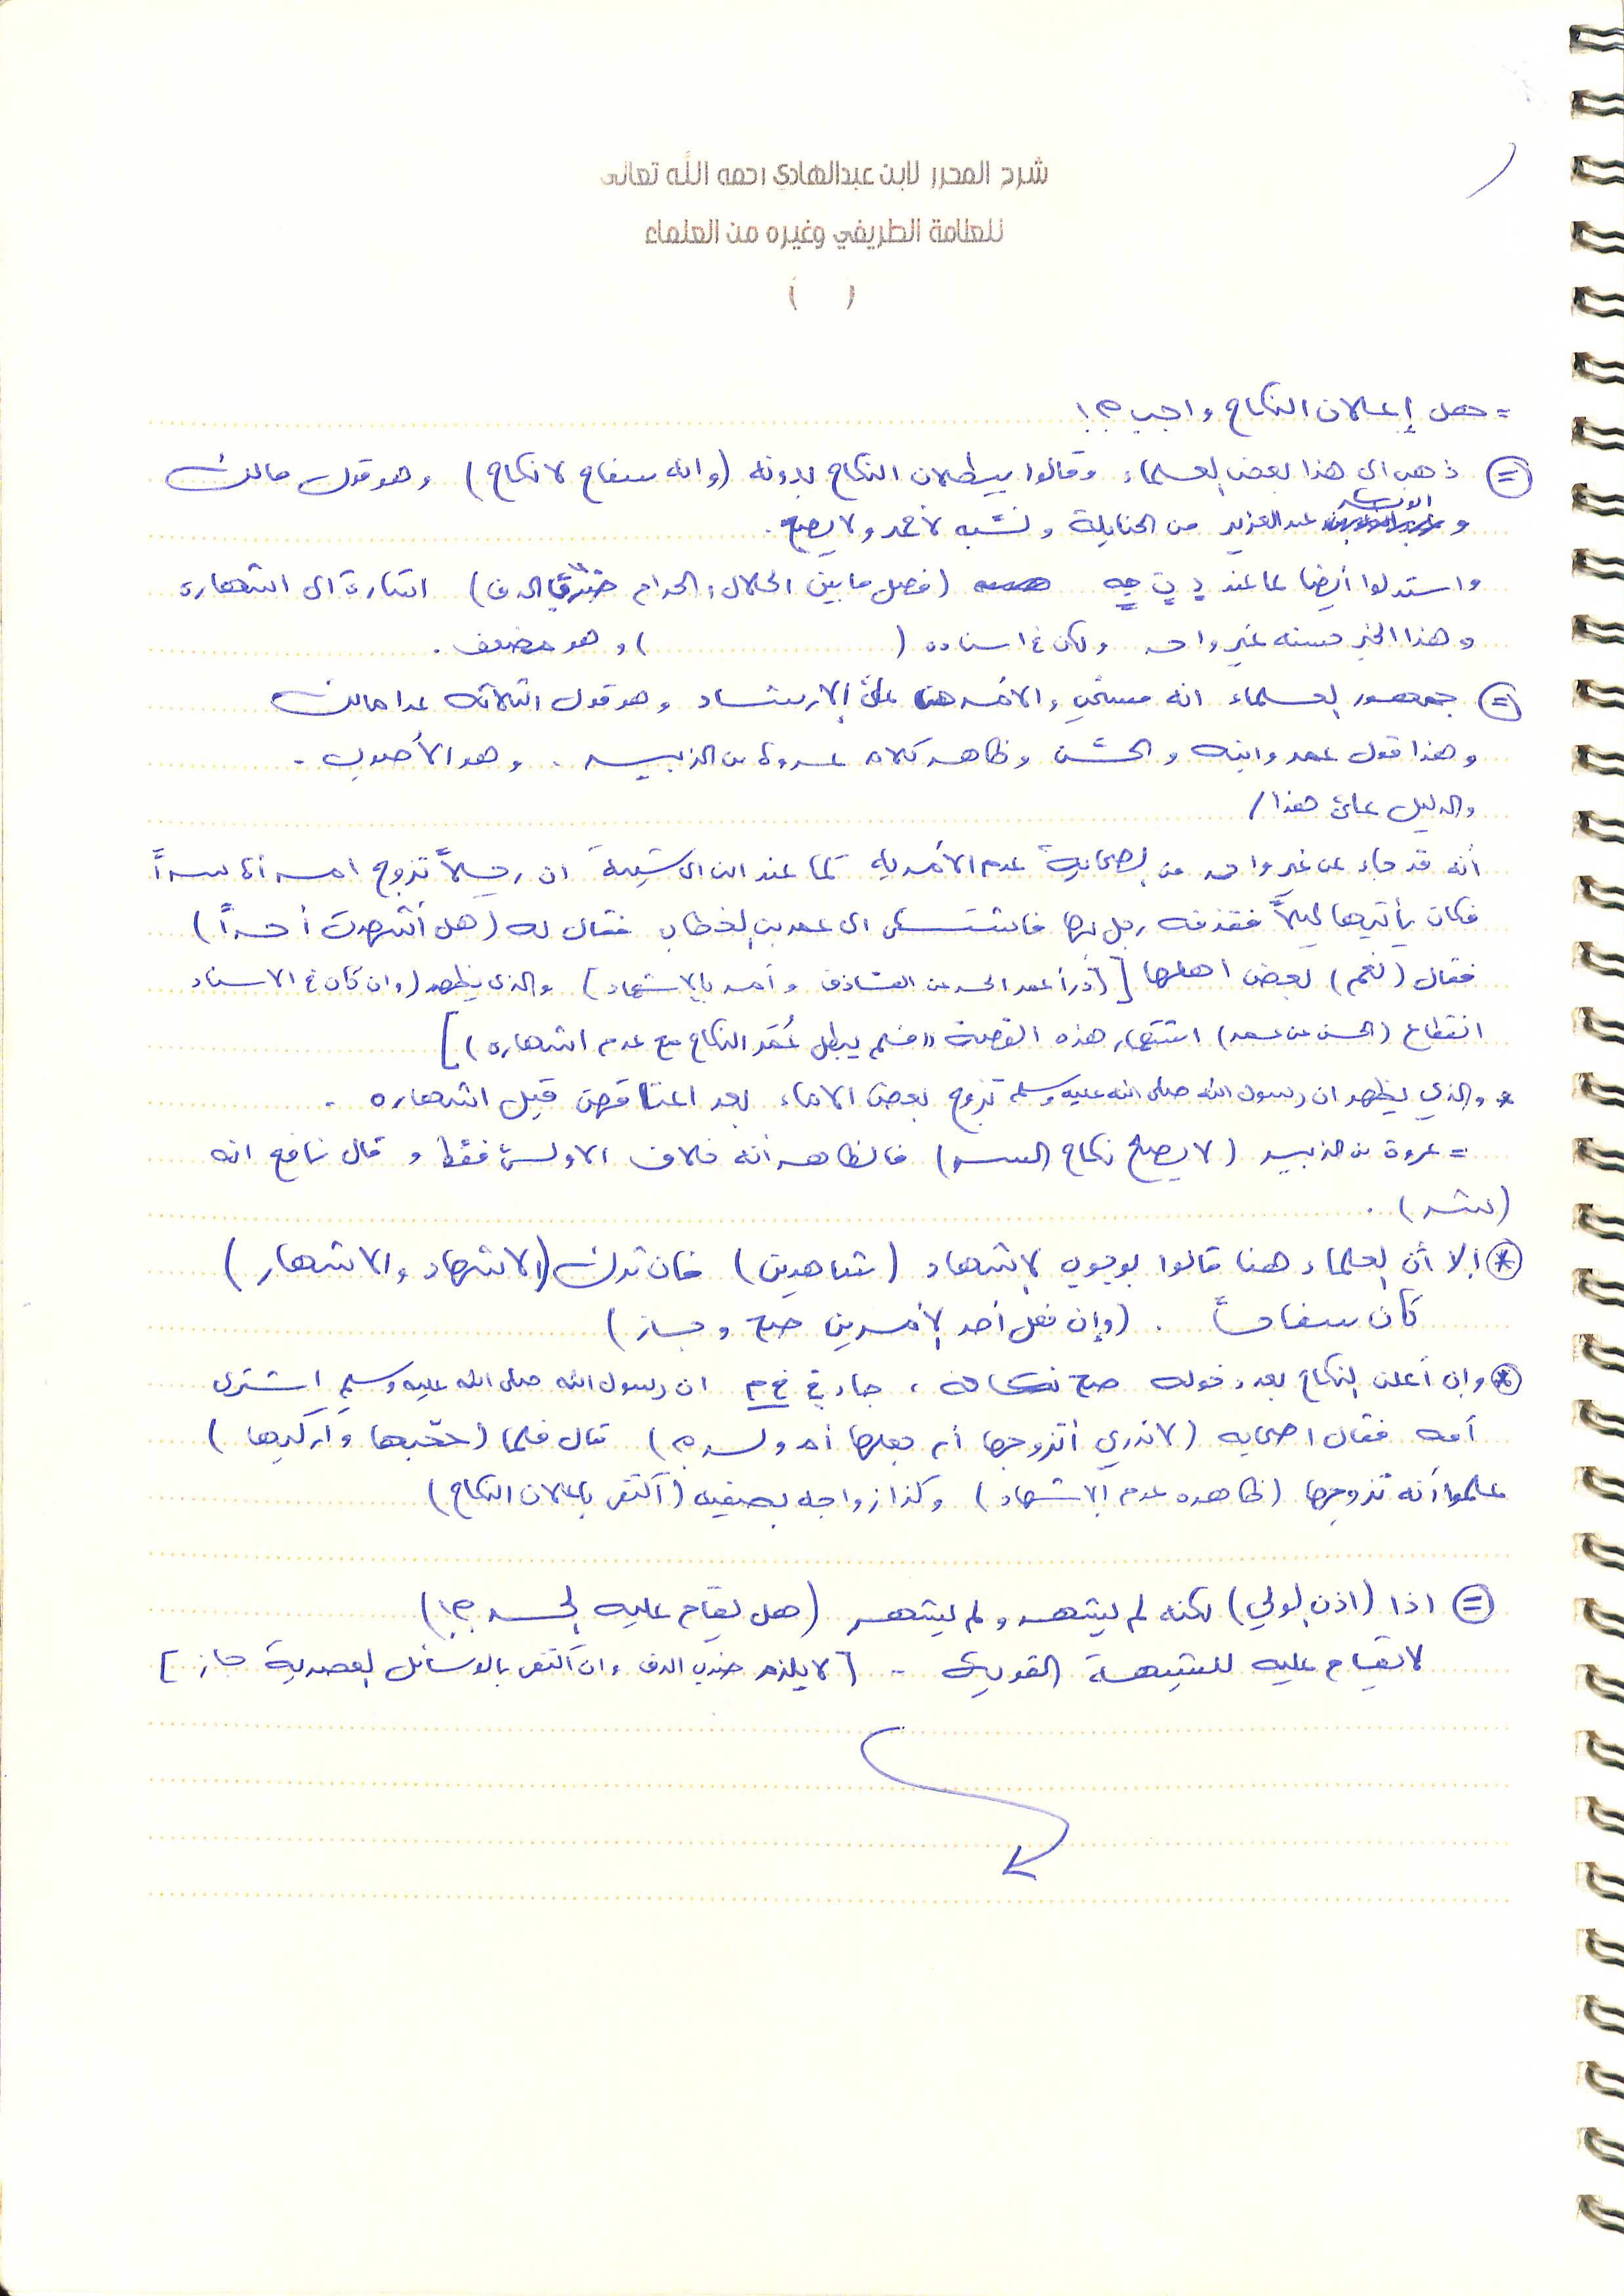 شرح المحرر لابن عبدالهادي رحمه الله تعالى
للعلامة الطريفي وغيره من العلماء
( )
= هل إعلان النكاح واجب ؟!
= ذهب الى هذا بعض العلماء وقالوا ببطلان النكاح بدونه (وانه سفاح لا نكاح) وهو قول مالك
و عبد العزيز من الحنابلة ونسبه لأحمد ولا يصح .
واستدلوا أيضا بما عند (فصل ما بين الحلال والحرام ضرب الدف) اشارة الى اشهاره
وهذا الخبر حسنه غير واحد ولكن في اسناده ( ) وهو مضعف .
= جمهور العلماء انه مستحب والأمر هنا على الارشاد وهو قول الثلاثة عدا مالك
وهذا قول عمر وابنه والحسن وظاهر كلام عروة بن الزبير . وهو الأصوب .
والدليل على هذا /
أنه قد جاء عن غير واحد من الصحابة عدم الأمر به كما عند ابن ابي شيبة ان رجلاً تزوج امرأة سراً
فكان يأتيها ليلاً فقذفه رجل بها فاشتكى الى عمر بن الخطاب فقال له (هل أشهدت أحداً)
فقال (نعم) بعض اهلها [(درأ عمر الحد عن القاذف وأمر بالاشهاد) والذي يظهر (وان كان في الاسناد
انقطاع (الحسن عن عمر) اشتهار هذه القصة «فلم يبطل عُمَر النكاح مع عدم اشهاره)]
* والذي يظهر ان رسول الله صلى الله عليه وسلم تزوج بعض الاماء بعد اعتاقهن قبل اشهاره .
= عروة بن الزبير (لا يصلح نكاح السر) فالظاهر أنه خلاف الاولى فقط وقال نافع انه
( ) .
* إلا أن العلماء هنا قالوا بوجوب الاشهاد (شاهدين) فان ترك (الاشهاد والاشهار)
كان سفاحاً . (وإن فعل أحد الأمرين صح وجاز)
* وإن أعلن النكاح بعد دخوله صح نكاحه ، جاء في خ م ان رسول الله صلى الله عليه وسلم اشترى
أمه فقال اصحابه (لا ندري أتزوجها أم جعلها أم ولد ؟) قال فلما (حجبها وأركبها)
علموا أنه تزوجها (ظاهره عدم الاشهاد) وكذا زواجه بصفيه (أكتفى باعلان النكاح)
= اذا (اذن الولي) لكنه لم يشهد ولم يشهر (هل يقام عليه الحد ؟!)
لا يقام عليه للشبهة القوية . [لا يلزم ضرب الدف وان أكتفى بالوسائل العصرية جاز]